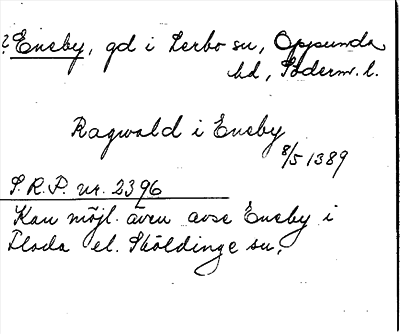 ? Eneby, gd i Lerbo sn, Oppunda
hd, Söderm. l.
Ragwald i Eneby
8/5 1389
S.R.P. nr. 2396
Kan möjl. även avse Eneby i
Floda el. Sköldinge sn.